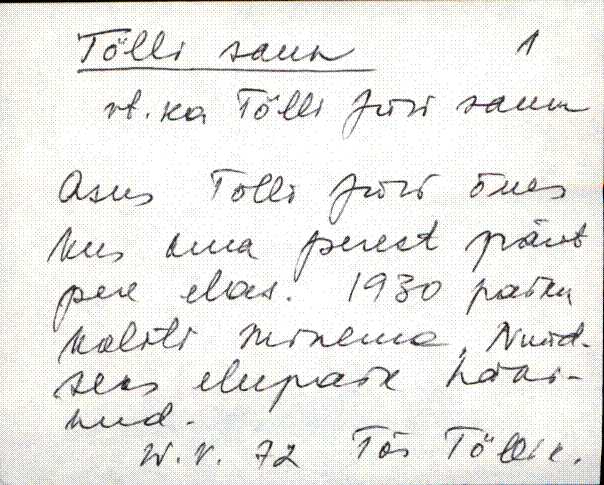 Tölli saun 1
vt. ka Tölli Jüri saun
Asus Tölli Jüri õues
kus oma perest pärit
pere elas. 1930 paiku
koliti minema. Nüüd-
seks elupaik hävi-
nud.
W. V. 72 Tõs Tõll